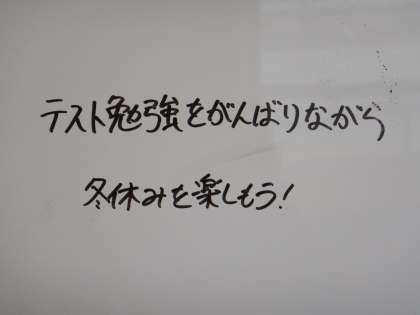 テスト勉強をがんばりながら
冬休みを楽しもう!